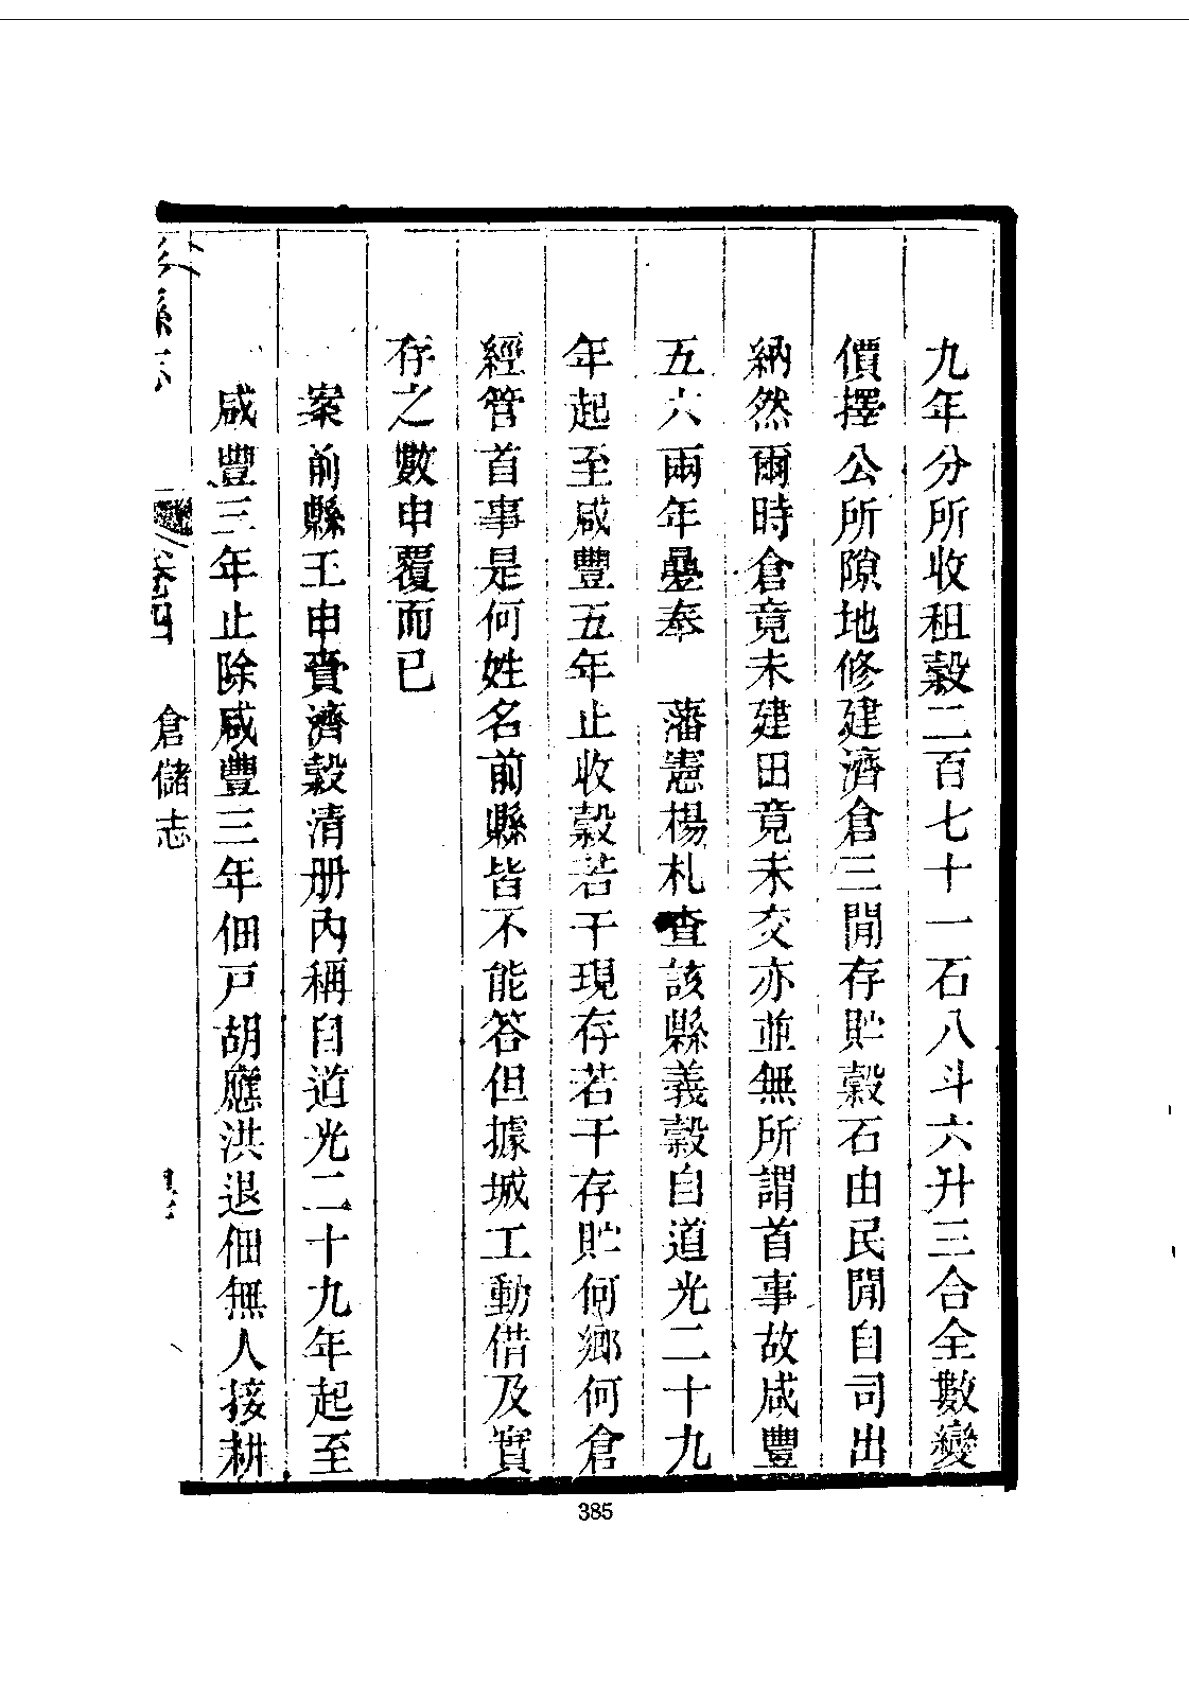 九年分所收租穀二百七十一石八斗六升三合全數變
價擇公所隙地修建濟倉三間存貯穀石由民間自司出
納然爾時倉竟未建田竟未交亦並無所謂首事故咸豐
五六兩年疊奉　藩憲楊札查該縣義穀自道光二十九
年起至咸豐五年止收穀若干現存若干存貯何鄉何倉
經管首事是何姓名前縣皆不能答但據城工動借及實
存之數申覆而已
案前縣王申賫濟穀清册內稱自道光二十九年起至
咸豐三年止除咸豐三年佃戸胡應洪退佃無人接耕
縣志　卷四　倉儲志
385